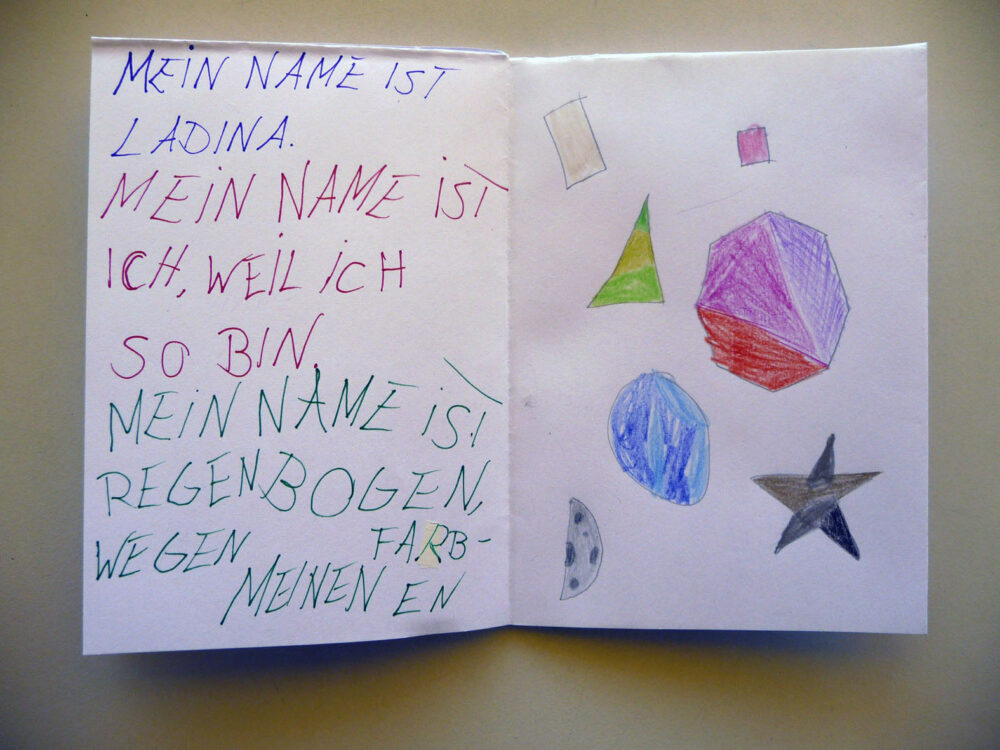 MEIN NAME IST
LADINA.
MEIN NAME IST
ICH, WEIL ICH
SO BIN.
MEIN NAME IST
REGENBOGEN,
WEGEN FARB-
MEINEN EN